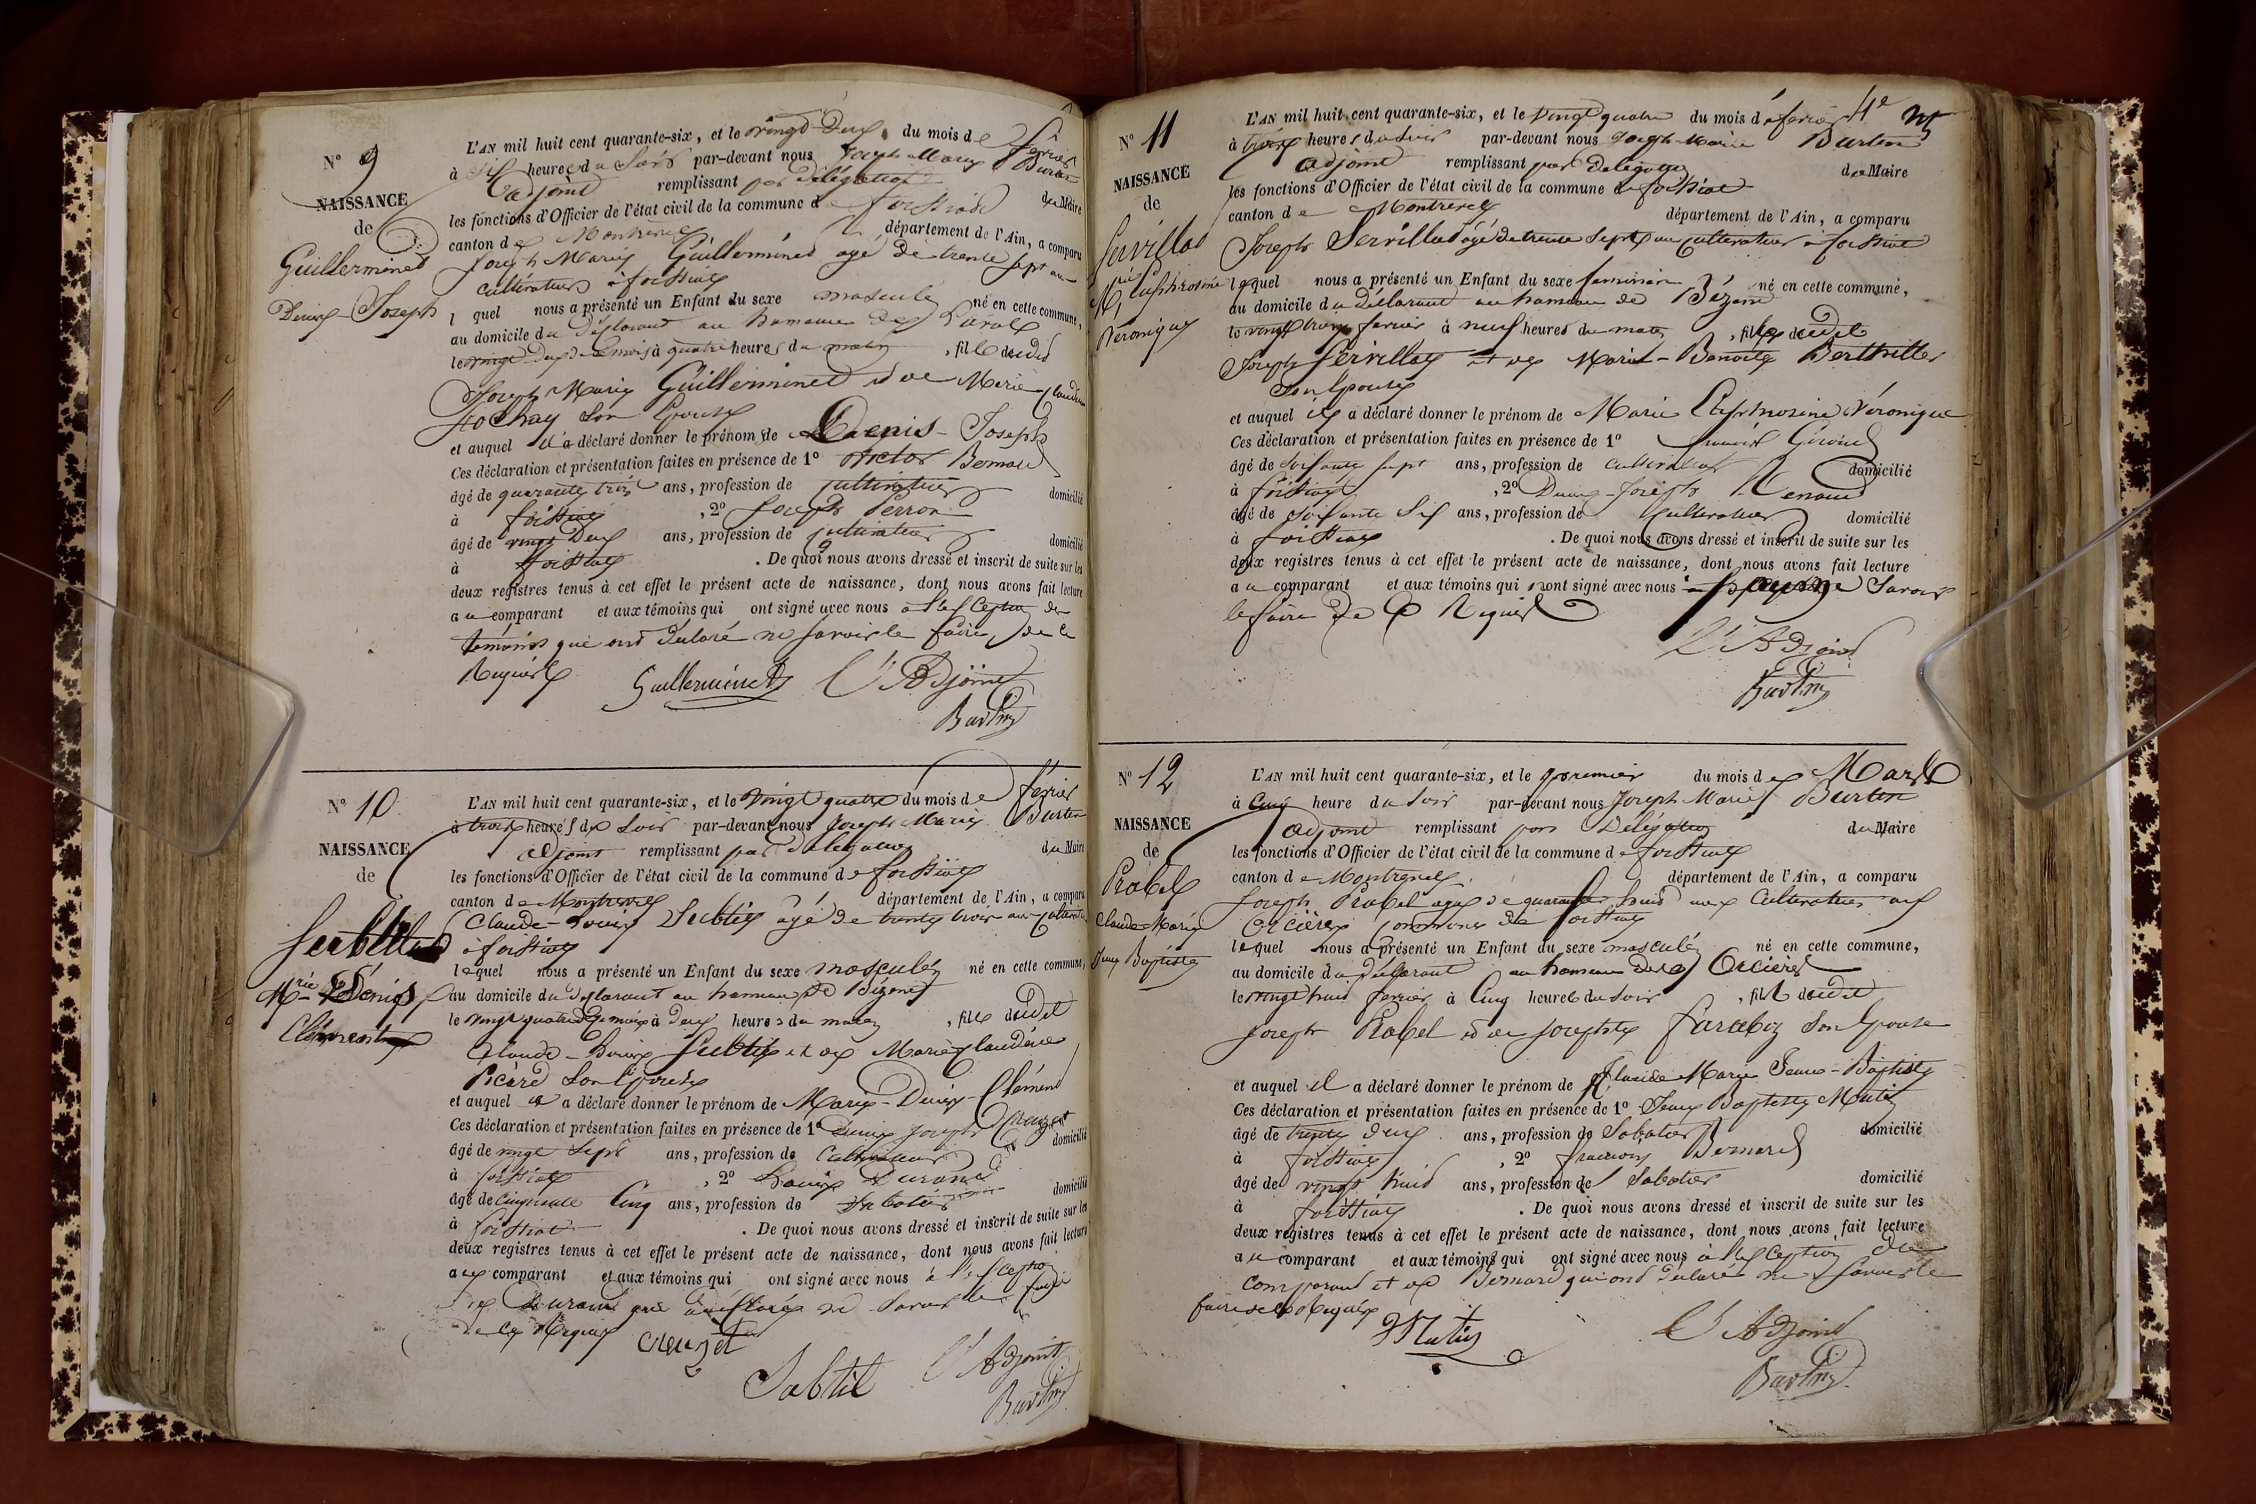 N° 9
NAISSANCE
de
Guillerminet
Denis-Joseph
L'AN mil huit cent quarante-six, et le vingt-deux du mois de février
à six heures du soir par-devant nous Joseph Marie Burtin
adjoint remplissant par délégation du Maire
les fonctions d'Officier de l'état civil de la commune de foissiat
canton de Montrevel département de l'Ain, a comparu
Joseph Marie Guillerminet agé de trente sept ans
cultivateur à foissiat
lequel nous a présenté un Enfant du sexe masculin né en cette commune,
au domicile du déclarant au hameau de
le vingt deux de ce mois à quatre heures du matin, fils dudit
Joseph Marie Guillerminet et de Marie Claudine
son épouse
et auquel il a déclaré donner le prénom de Denis-Joseph
Ces déclaration et présentation faites en présence de 1° Victor Bernard
âgé de quarante trois ans, profession de cultivateur domicilié
à foissiat, 2° Joseph Perron
âgé de vingt deux ans, profession de cultivateur domicilié
à foissiat. De quoi nous avons dressé et inscrit de suite sur les
deux registres tenus à cet effet le présent acte de naissance, dont nous avons fait lecture
au comparant et aux témoins qui ont signé avec nous à l'exception des
témoins qui ont déclaré ne savoir le faire, de ce
Requis
Guillerminet L'Adjoint
Burtin
N° 10
NAISSANCE
de
Subtil
Mrie Denise
L'AN mil huit cent quarante-six, et le vingt quatre du mois de février
à trois heures du soir par-devant nous Joseph Marie Burtin
adjoint remplissant par délégation du Maire
les fonctions d'Officier de l'état civil de la commune de foissiat
canton de Montrevel département de l'Ain, a comparu
Claude-Louis Subtil âgé de trente trois ans cultivateur
à foissiat
lequel nous a présenté un Enfant du sexe masculin né en cette commune,
au domicile du déclarant au hameau de Bézanet
le vingt quatre de ce mois à deux heures du matin, fils dudit
Claude-Louis Subtil et de Marie Claudine
Picard son épouse
et auquel il a déclaré donner le prénom de Marie-Denis-Clément
Ces déclaration et présentation faites en présence de 1° Denis Joseph Creuzet
âgé de vingt sept ans, profession de cultivateur domicilié
à foissiat, 2° Louis Durand
âgé de cinquante cinq ans, profession de sabotier domicilié
à foissiat. De quoi nous avons dressé et inscrit de suite sur les
deux registres tenus à cet effet le présent acte de naissance, dont nous avons fait lecture
au comparant et aux témoins qui ont signé avec nous à l'exception
de Durand qui a déclaré ne savoir le faire
de ce Requis Creuzet
Subtil L'Adjoint
Burtin
4e
N° 11
NAISSANCE
de
Servillat
Mrie Euphrosine
Véronique
L'AN mil huit cent quarante-six, et le vingt quatre du mois de février
à trois heures du soir par-devant nous Joseph Marie Burtin
adjoint remplissant par délégation du Maire
les fonctions d'Officier de l'état civil de la commune de foissiat
canton de Montrevel département de l'Ain, a comparu
Joseph Servillat âgé de trente sept ans cultivateur à foissiat
lequel nous a présenté un Enfant du sexe féminin né en cette commune,
au domicile du déclarant au hameau de Bézanet
le vingt trois février à neuf heures du matin, fille dudit
Joseph Servillat et de Marie-Benoite Berthillet
son épouse
et auquel il a déclaré donner le prénom de Marie Euphrosine Véronique
Ces déclaration et présentation faites en présence de 1° Giroud
âgé de soixante sept ans, profession de cultivateur domicilié
à foissiat, 2° Denis-Joseph Renaud
âgé de soixante six ans, profession de cultivateur domicilié
à foissiat. De quoi nous avons dressé et inscrit de suite sur les
deux registres tenus à cet effet le présent acte de naissance, dont nous avons fait lecture
au comparant et aux témoins qui n'ont signé avec nous savoir
le faire de ce Requis
L'Adjoint
Burtin
N° 12
NAISSANCE
de
Probel
Claude Marie
Jean Baptiste
L'AN mil huit cent quarante-six, et le premier du mois de Mars
à cinq heure du soir par-devant nous Joseph Marie Burtin
adjoint remplissant par délégation du Maire
les fonctions d'Officier de l'état civil de la commune de foissiat
canton de Montrevel département de l'Ain, a comparu
Joseph Probel agé de quarante huit ans cultivateur aux
Orcières commune de foissiat
lequel nous a présenté un Enfant du sexe masculin né en cette commune,
au domicile du déclarant au hameau des Orcières
le vingt huit février à cinq heures du soir, fils dudit
Joseph Probel et de Josephte faraboz son épouse
et auquel il a déclaré donner le prénom de Claude Marie Jean-Baptiste
Ces déclaration et présentation faites en présence de 1° Jean Baptiste Mutin
âgé de trente deux ans, profession de sabotier domicilié
à foissiat, 2° françois Bernard
âgé de vingt huit ans, profession de sabotier domicilié
à foissiat. De quoi nous avons dressé et inscrit de suite sur les
deux registres tenus à cet effet le présent acte de naissance, dont nous avons fait lecture
au comparant et aux témoins qui ont signé avec nous à l'exception du
comparant et de Bernard qui ont déclaré ne savoir le
faire de ce Requis
Mutin L'Adjoint
Burtin